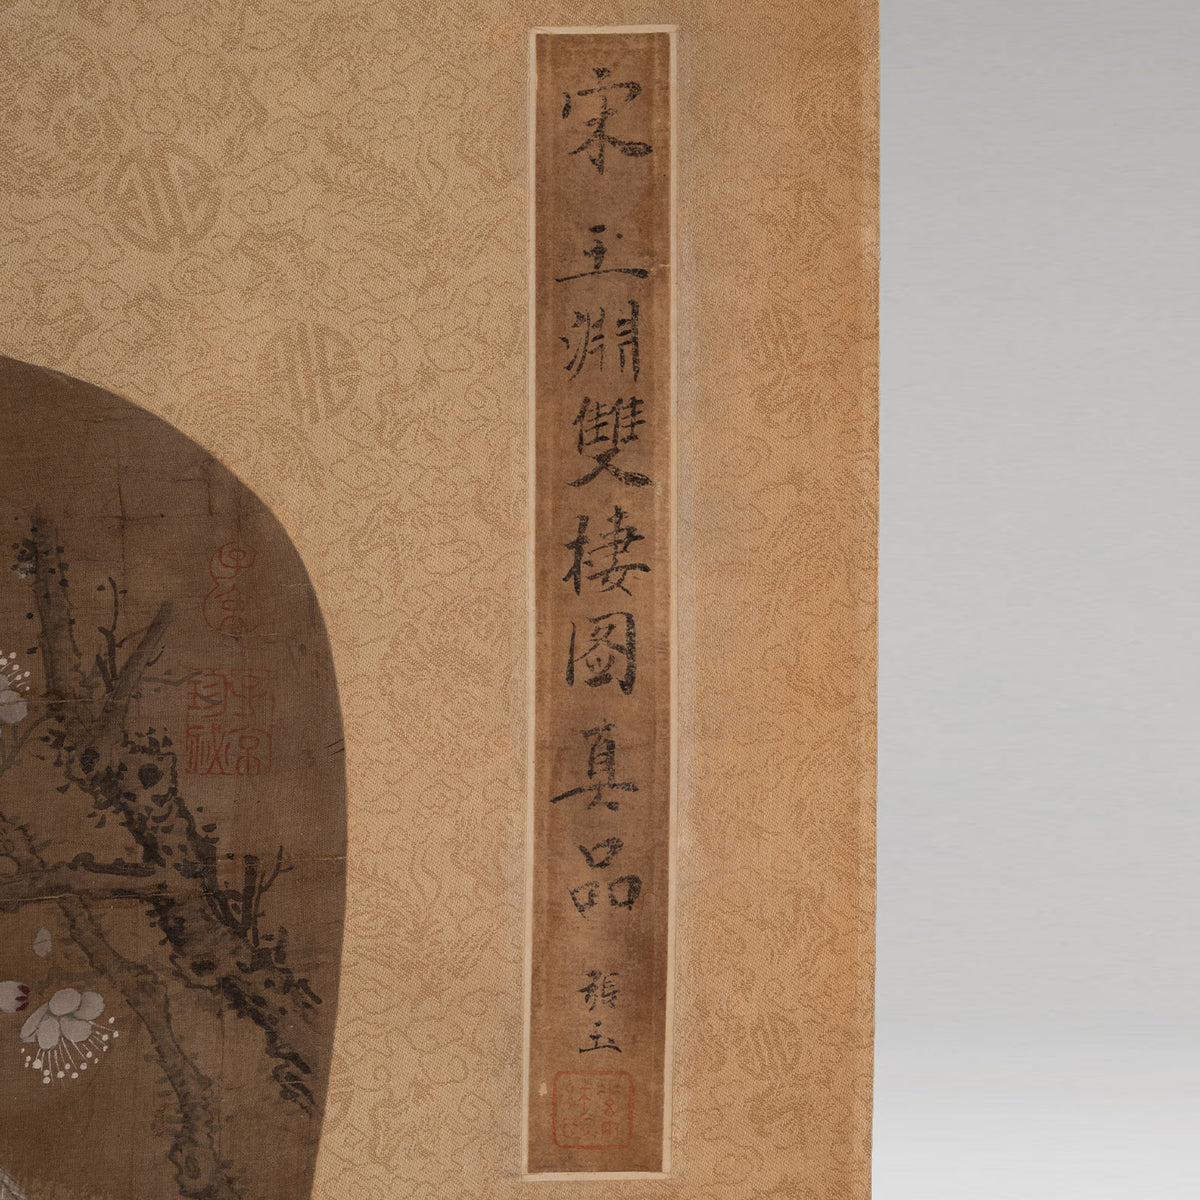 宋王淵雙棲圖真品
張玉